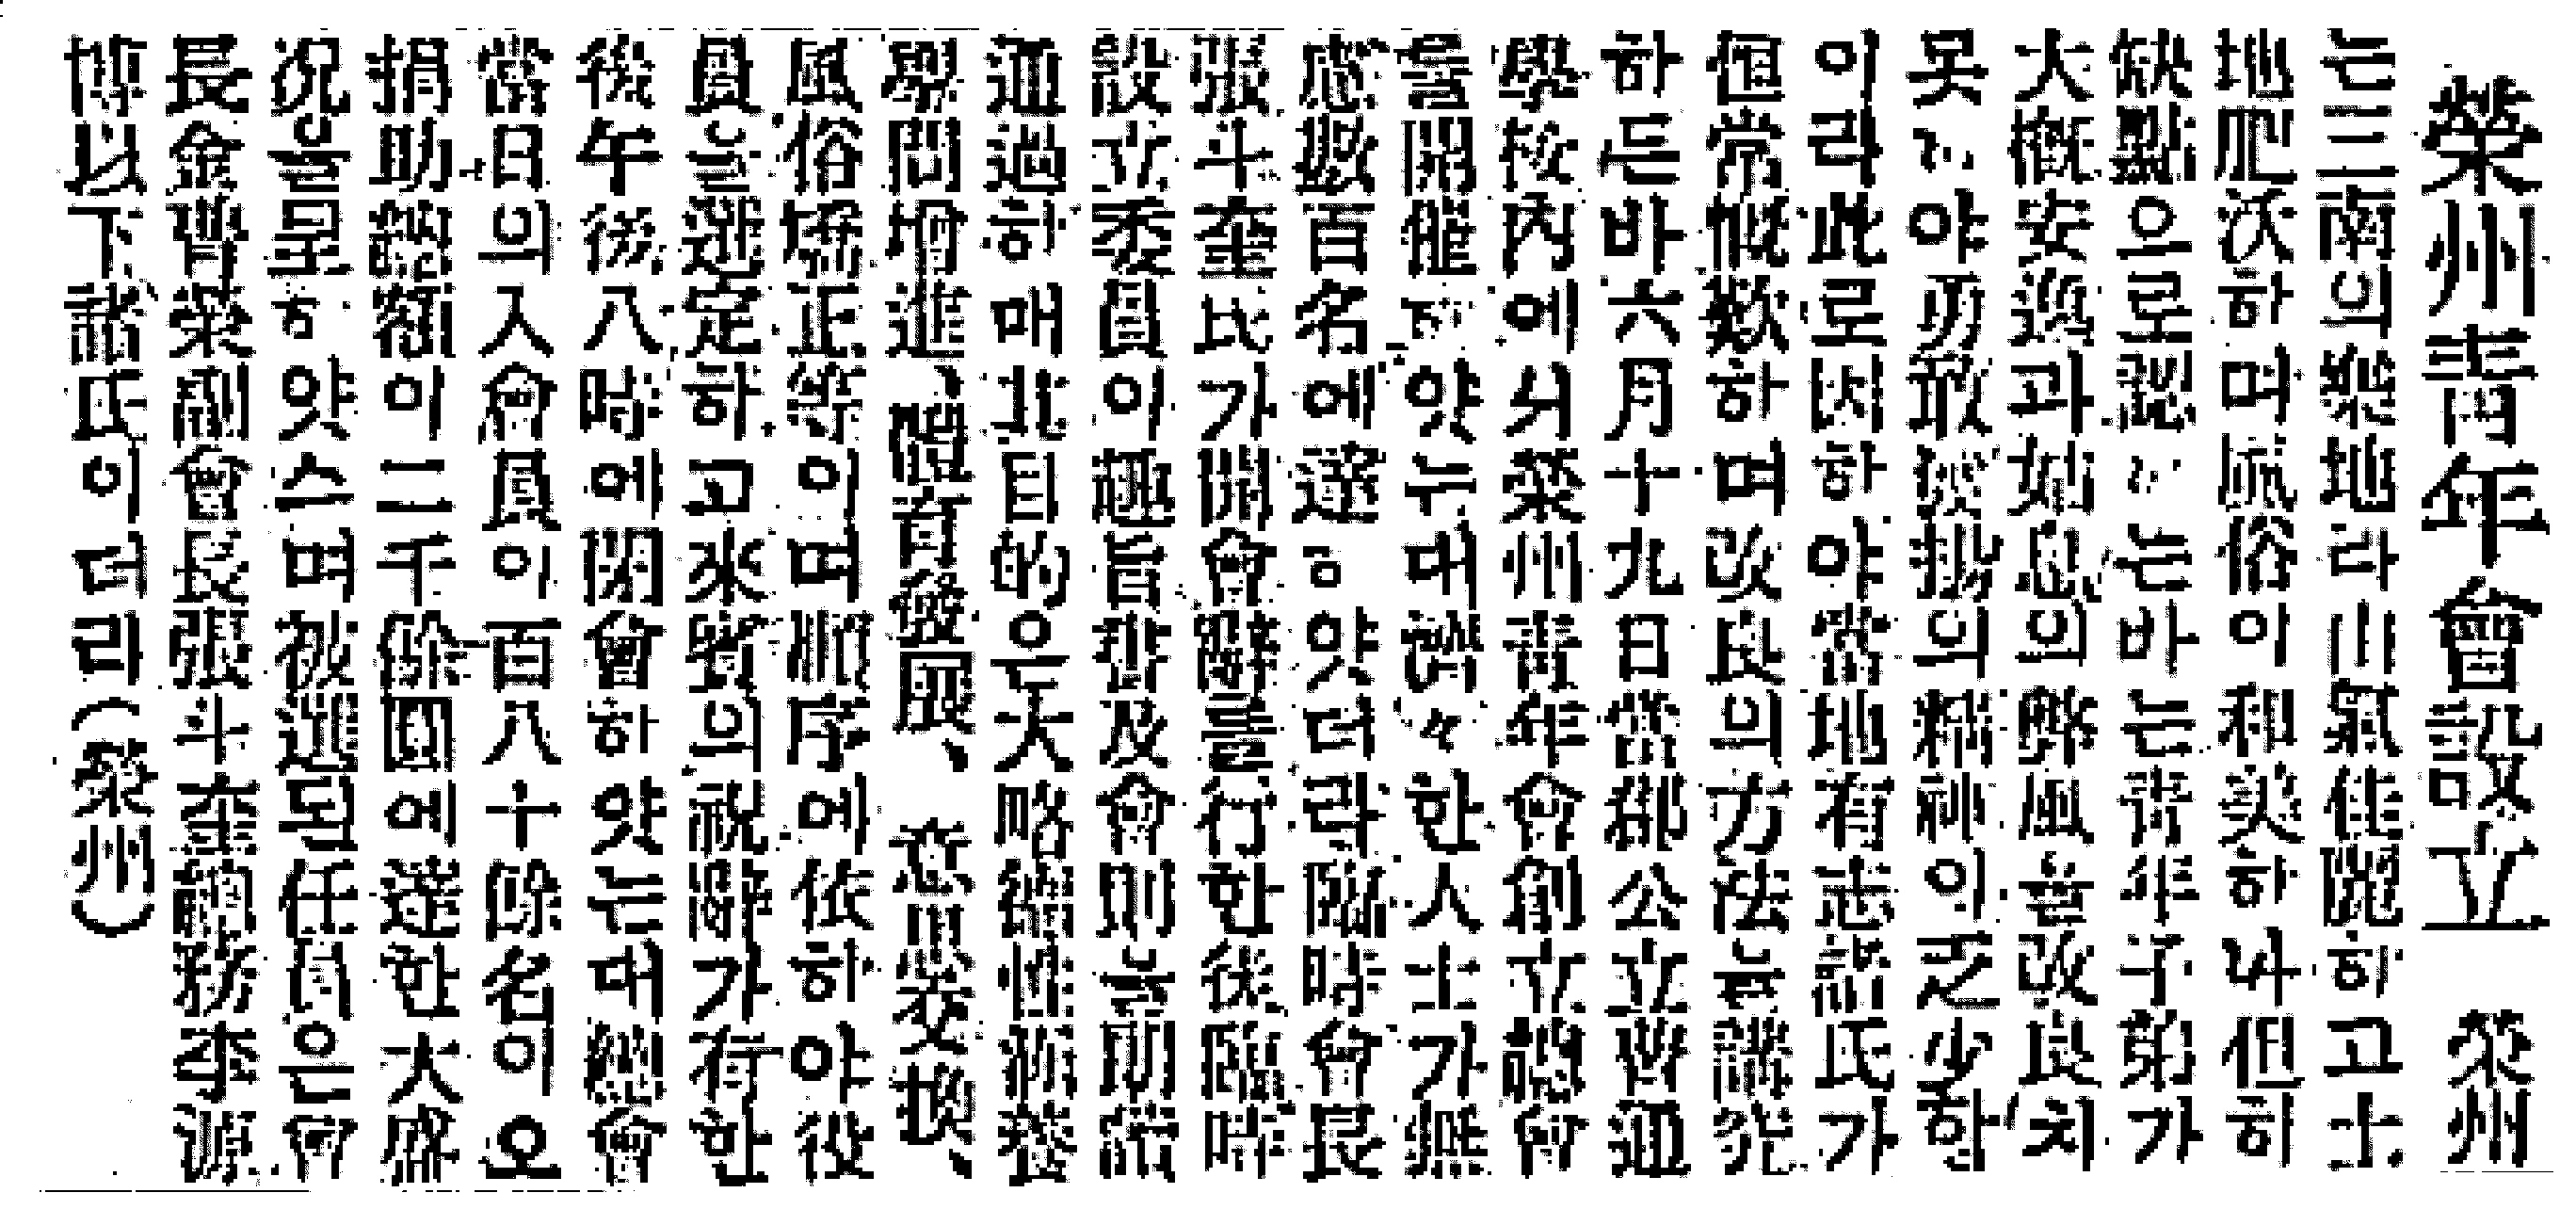 榮州靑年會設立　榮州
는三南의樂地라山氣佳麗하고土
地肥沃하며風俗이和美하나但히
缺點으로認하는바는靑年子弟가
大槪安逸과姑息의弊風을改良치
못하야勇敢活動의精神이乏少함
이라此로因하야當地有志諸氏가
恒常慨歎하며改良의方法을講究
하든바六月十九日當郡公立普通
學校內에서榮州靑年會創立總會
를開催하얏는대誠々한人士가無
慮數百名에達하얏더라臨時會長
張斗奎氏가開會辭를行한後臨時
設立委員이趣旨書及會則을朗讀
通過하매此目的은大略德性涵養
學問增進、體育發展、患難相救、
風俗矯正等이며順序에依하야役
員을選定하고來賓의祝辭가有한
後午後八時에閉會하얏는대總會
當日의入會員이百八十餘名이오
捐助總額이二千餘圓에達한大盛
況을呈하얏스며被選된任員은會
長金 榮副會長張斗奎總務李源
博以下諸氏이더라(榮州)